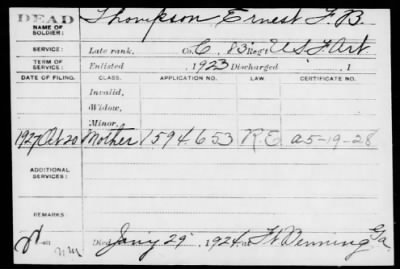 DEAD
NAME OF SOLDIER:
Thompson Ernest F. B.
SERVICE:
Late rank, Co. C, 83 Reg't U S F Art.
TERM OF SERVICE:
Enlisted , 1923 Discharged , 1
DATE OF FILING. CLASS. APPLICATION NO. LAW. CERTIFICATE NO.
Invalid,
Widow,
Minor,
1927 Oct 20 Mother 1594.653 R.E. a5-19-28
ADDITIONAL SERVICES:
REMARKS:
Died Jany 29, 1924 at Ft Benning Ga.